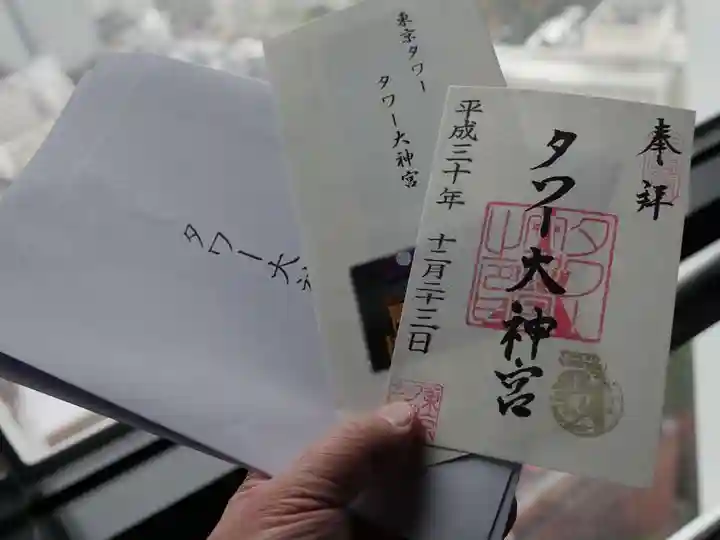 奉拝
タワー大神宮
平成三十年 十二月二十三日
東京タワー
タワー大神宮
タワー大